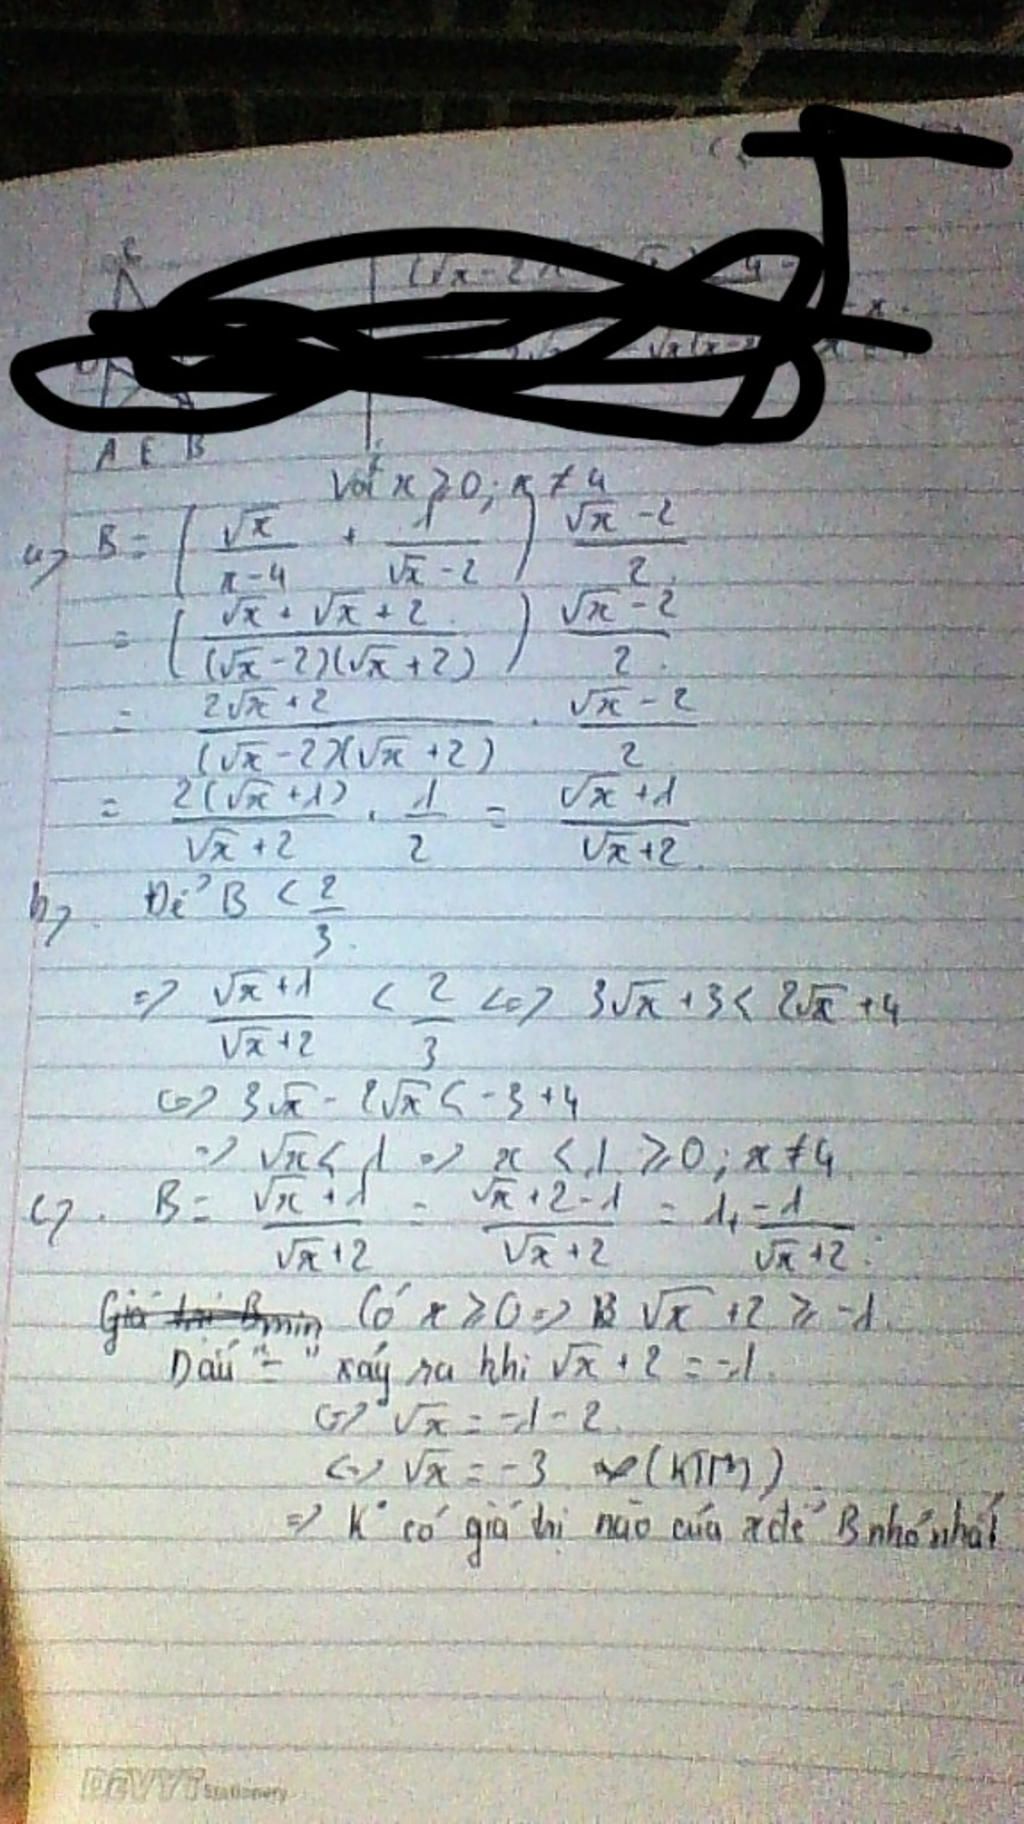 C
A E B
Với x ≥ 0; x ≠ 4
a) B = ( √x / (x-4) + 1 / (√x - 2) ) (√x - 2) / 2
= ( (√x + √x + 2) / ((√x-2)(√x+2)) ) (√x - 2) / 2
= (2√x + 2) / ((√x-2)(√x+2)) . (√x - 2) / 2
= 2(√x+1) / (√x+2) . 1/2 = (√x+1) / (√x+2)
b) Để B < 2/3
=> (√x+1) / (√x+2) < 2/3 <=> 3√x + 3 < 2√x + 4
<=> 3√x - 2√x < -3 + 4
=> √x < 1 => x < 1 ≥ 0; x ≠ 4
c) B = (√x+1) / (√x+2) = (√x+2-1) / (√x+2) = 1 + -1 / (√x+2)
Giá trị Bmin Có x ≥ 0 => B √x + 2 ≥ -1
Dấu "=" xảy ra khi √x + 2 = -1
<=> √x = -1 - 2
<=> √x = -3 (KTM)
=> K° có giá trị nào của x để B nhỏ nhất
DEVYT Stationery